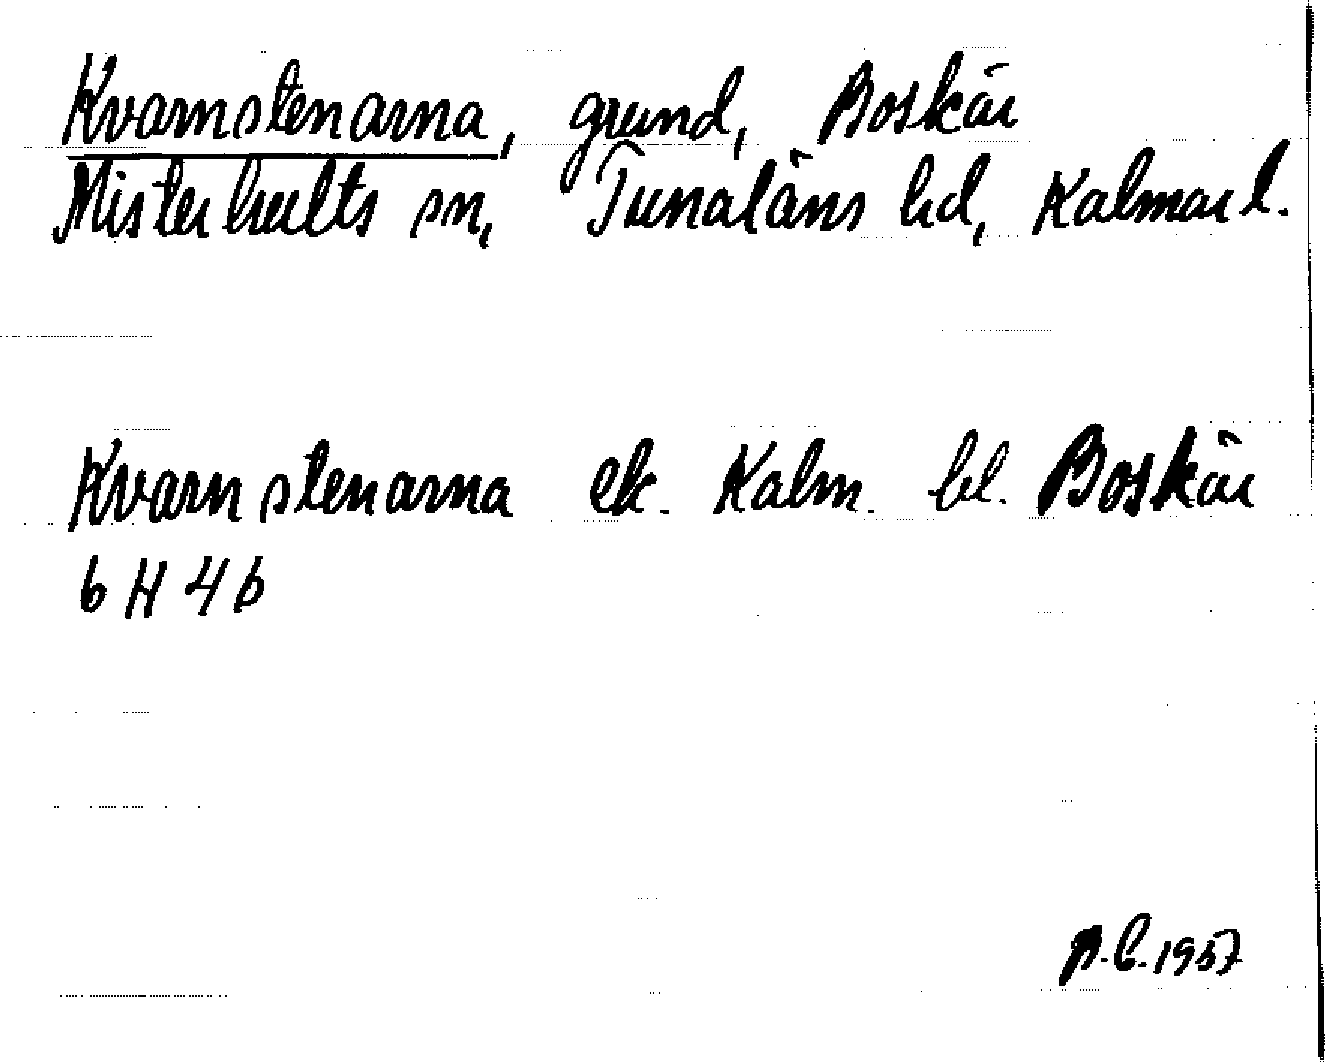 Kvarnstenarna, grund, Boskär
Misterhults sn, Tunaläns hd, Kalmar l.
Kvarnstenarna ek. Kalm. bl. Boskär
6 H 4 b
B.L. 1957